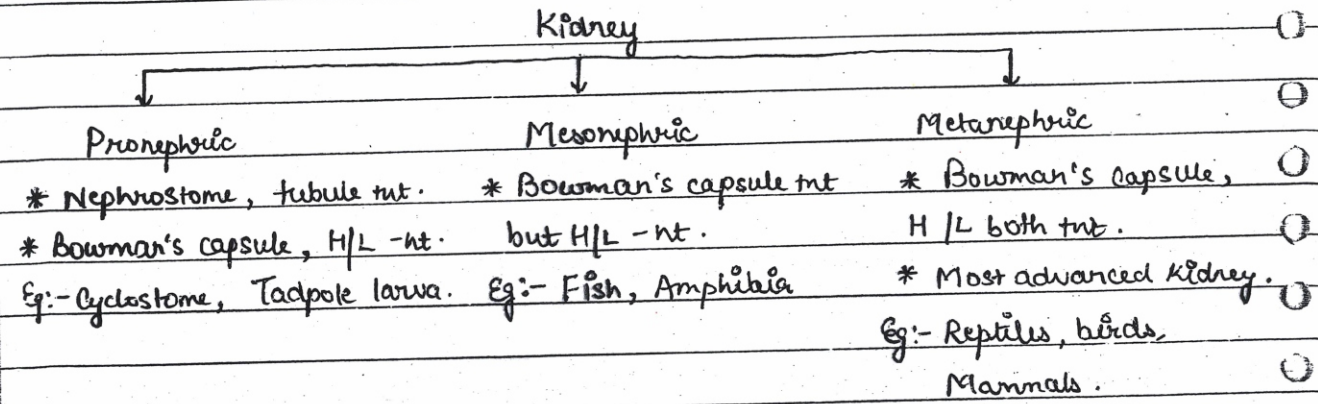 Kidney
Pronephric
* Nephrostome, tubule tnt.
* Bowman's capsule, H/L -nt.
Eg:- Cyclostome, Tadpole larva.
Mesonephric
* Bowman's capsule tnt
but H/L -nt.
Eg:- Fish, Amphibia
Metanephric
* Bowman's capsule,
H/L both tnt.
* Most advanced kidney.
Eg:- Reptiles, birds,
Mammals.